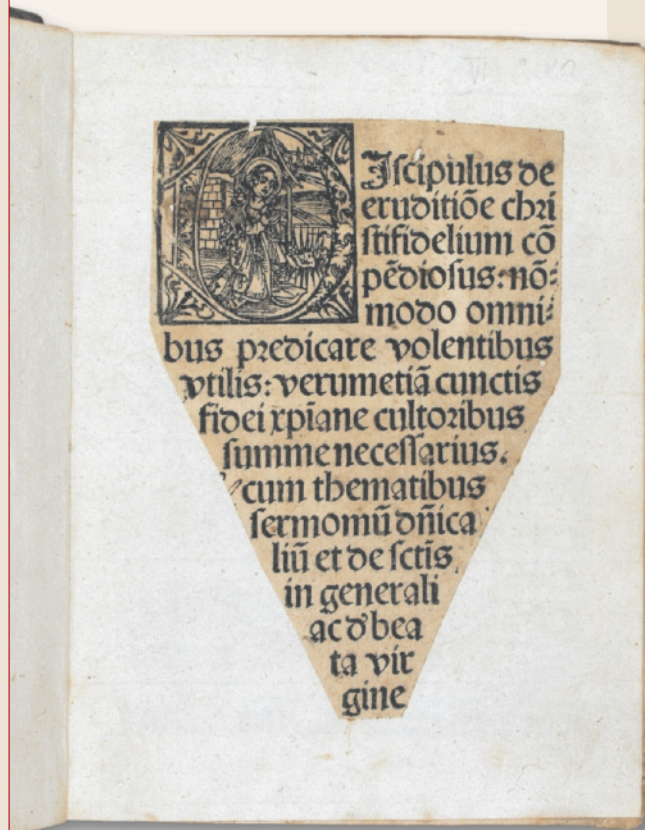 DJscipulus de
eruditiõe chꝛi
stifidelium cõ
pẽdiosus: nõ⸗
modo omni⸗
bus pꝛedicare volentibus
vtilis: verumetiã cunctis
fidei xp̄iane cultoꝛibus
summe necessarius.
cum thematibus
sermomũ dñica
liũ et de sctis
in generali
ac ď bea
ta vir
gine